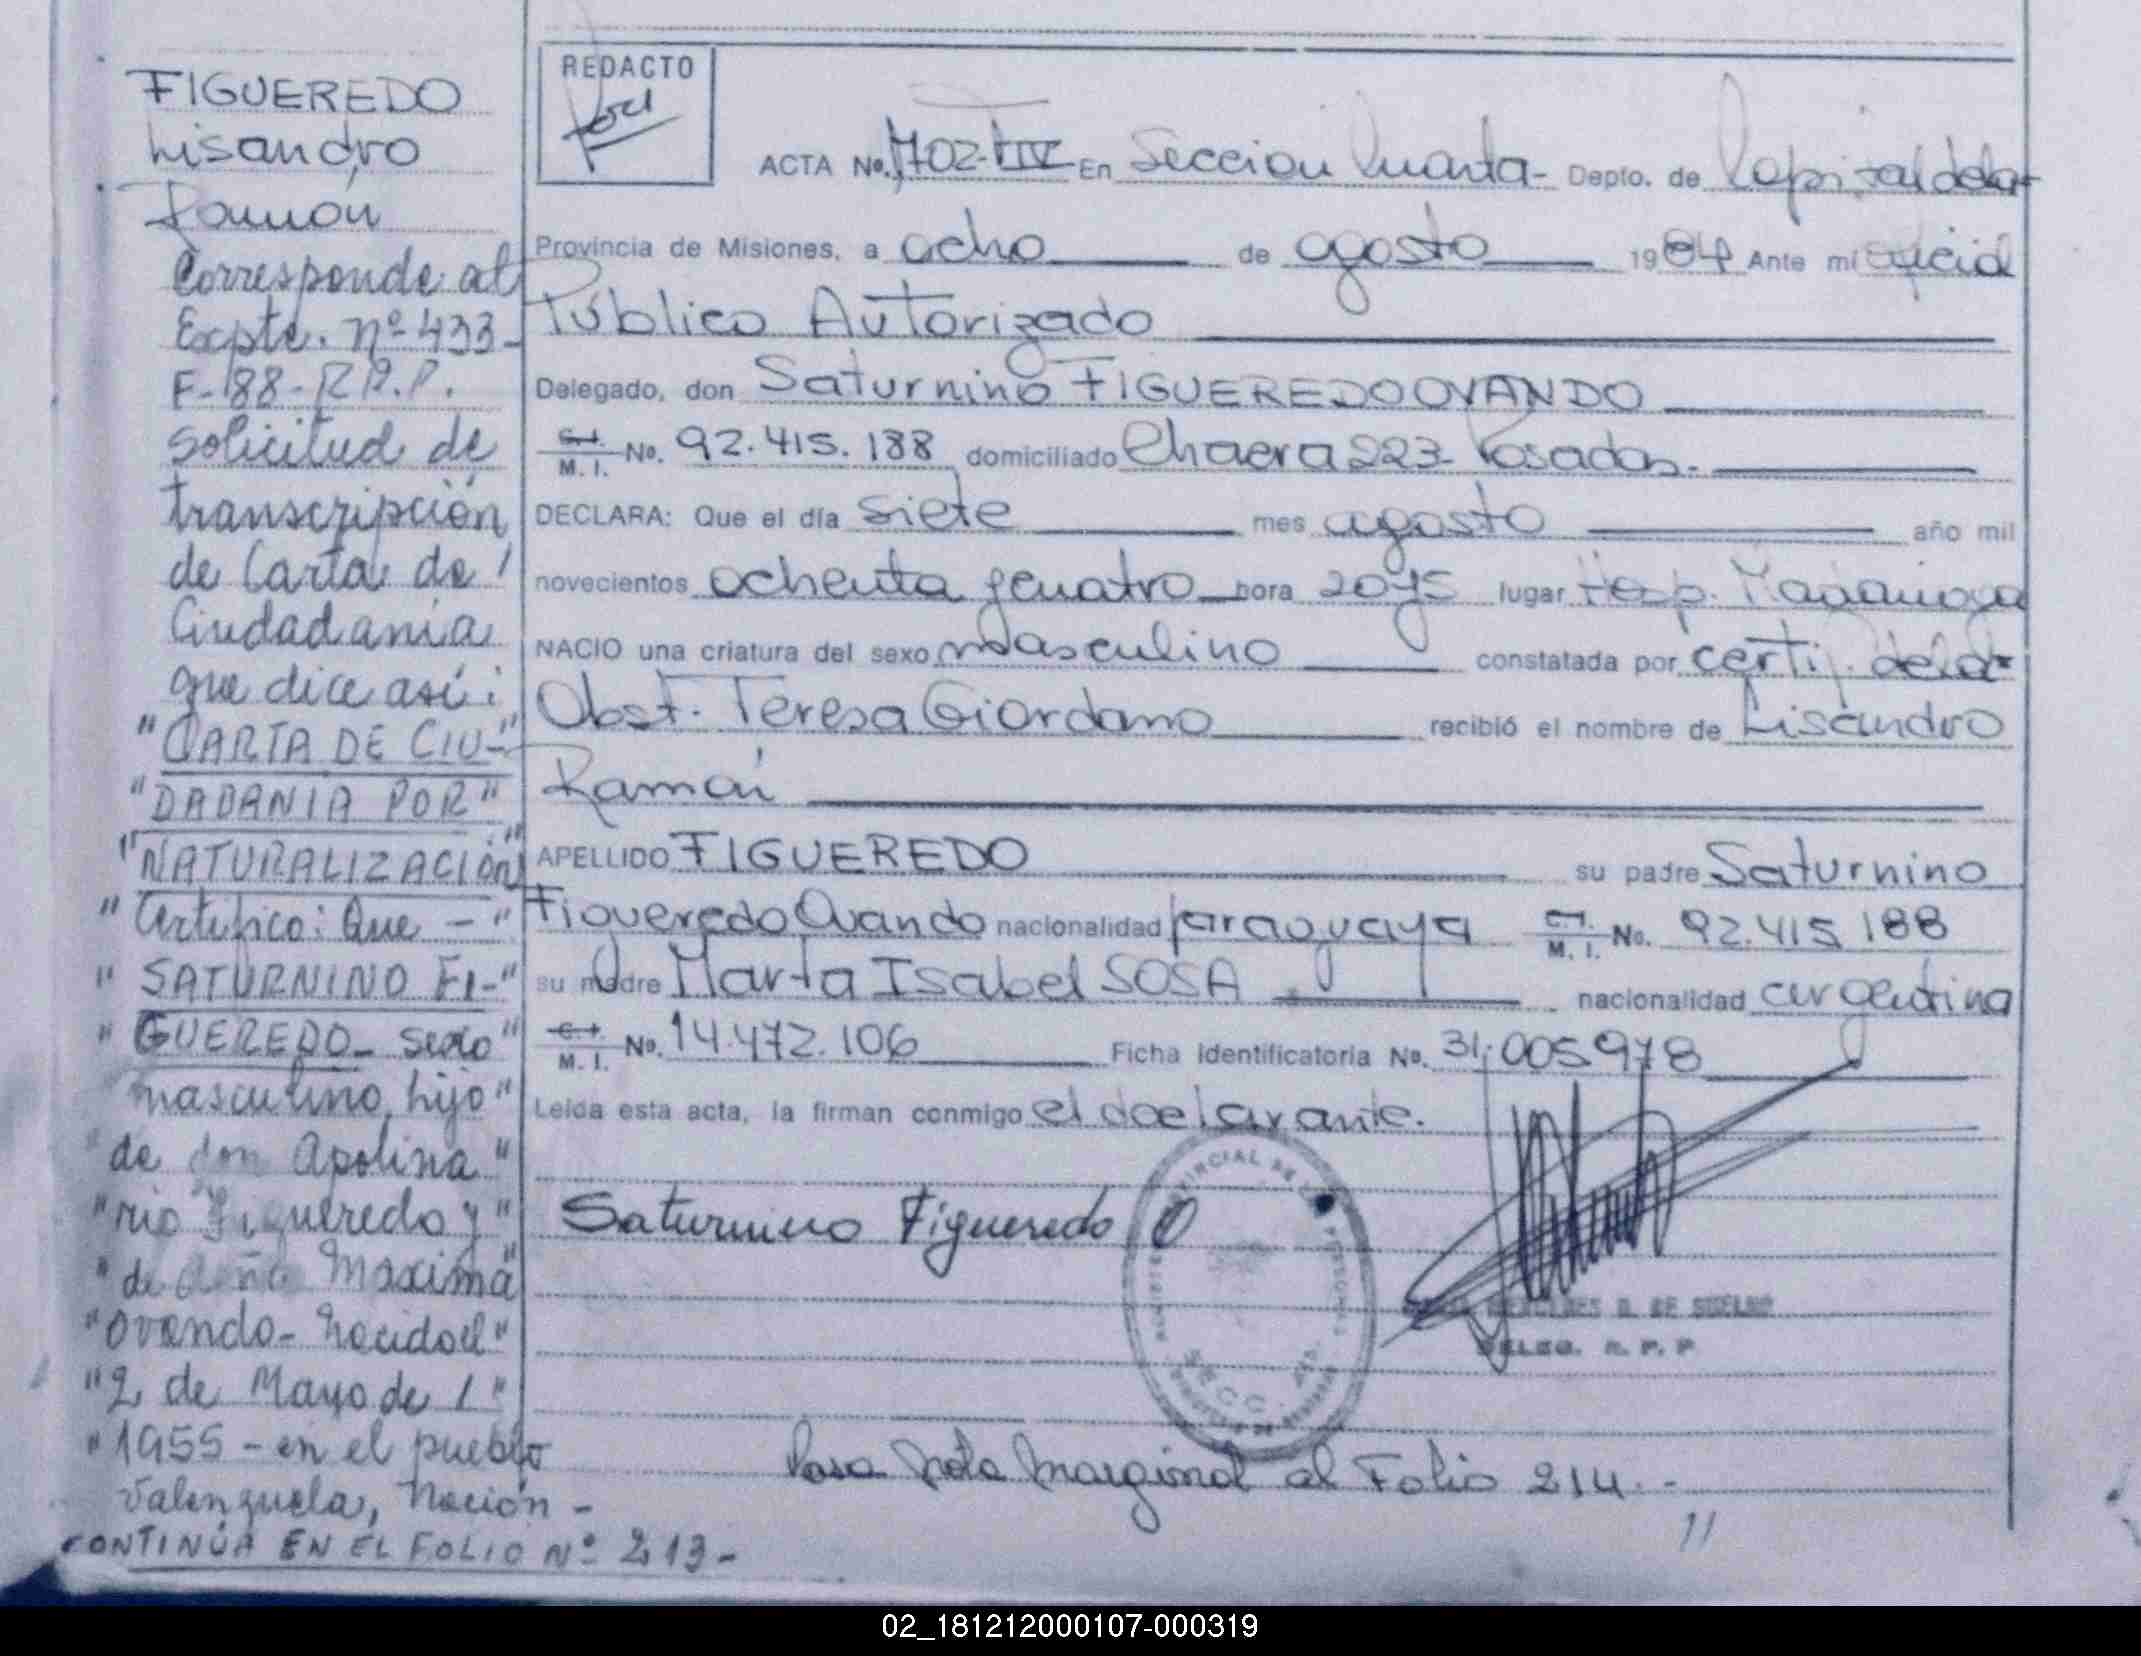 FIGUEREDO
Lisandro
Ramón
Corresponde al
Expte. nº 433-
F-88-R.P.P.
Solicitud de
transcripción
de Carta de
Ciudadania
que dice así:
"CARTA DE CIU-"
"DADANIA POR"
"NATURALIZACIÓN"
"Certifico: Que -"
"SATURNINO FI-"
"GUEREDO- sexo"
masculino, hijo"
"de don Apolina"
"rio Figueredo y"
"de doña Maxima"
"Ovando- Nacido el"
"2 de Mayo de"
"1955 - en el pueblo
Valenzuela, Nación -
CONTINÚA EN EL FOLIO Nº 213-
REDACTO
ACTA Nº. 702-TIV En Sección Cuarta- Depto. de Capital de la
Provincia de Misiones, a ocho de agosto 1984 Ante mí Oficial
Público Autorizado
Delegado, don Saturnino FIGUEREDO OVANDO
C.I. M. I. No. 92.415.188 domiciliado Chacra 223- Posadas.
DECLARA: Que el día siete mes agosto año mil
novecientos ochenta y cuatro hora 20y15 lugar Hosp. Madariaga
NACIO una criatura del sexo masculino constatada por certif. de la
Obst. Teresa Giordano recibió el nombre de Lisandro
Ramón
APELLIDO FIGUEREDO su padre Saturnino
Figueredo Ovando nacionalidad paraguaya C.I. M. I. No. 92.415.188
su madre Marta Isabel SOSA nacionalidad argentina
C.I. M. I. No. 14.472.106 Ficha identificatoria No. 31.005978
Leída esta acta, la firman conmigo el declarante.
Saturnino Figueredo O
DELEG. R. P. P.
Pasa Nota Marginal al Folio 214.-
02_181212000107-000319